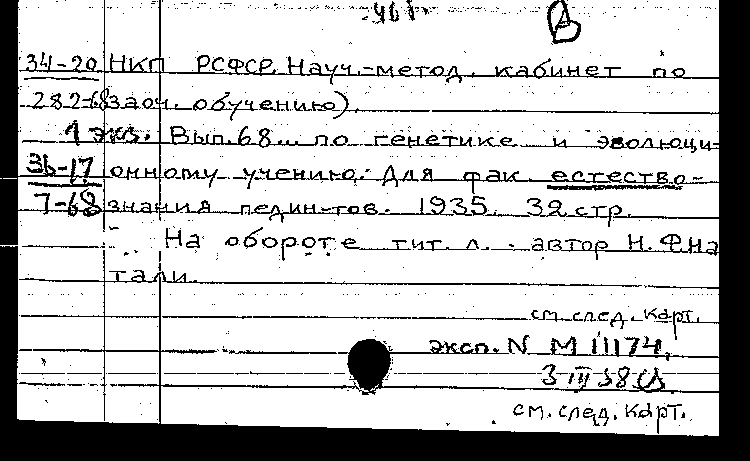 34-20 НКП РСФСР. Науч.-метод. кабинет по
282-68 заоч. обучению).
1 экз. Вып. 68... по генетике и эволюци-
36-17 онному учению. Для фак. естество-
7-68 знания педин-тов. 1935. 32 стр.
На обороте тит. л. . автор Н. Ф. На
тали.
см. след. карт.
эксп. N М 11174,
3 III 38
см. след. карт.